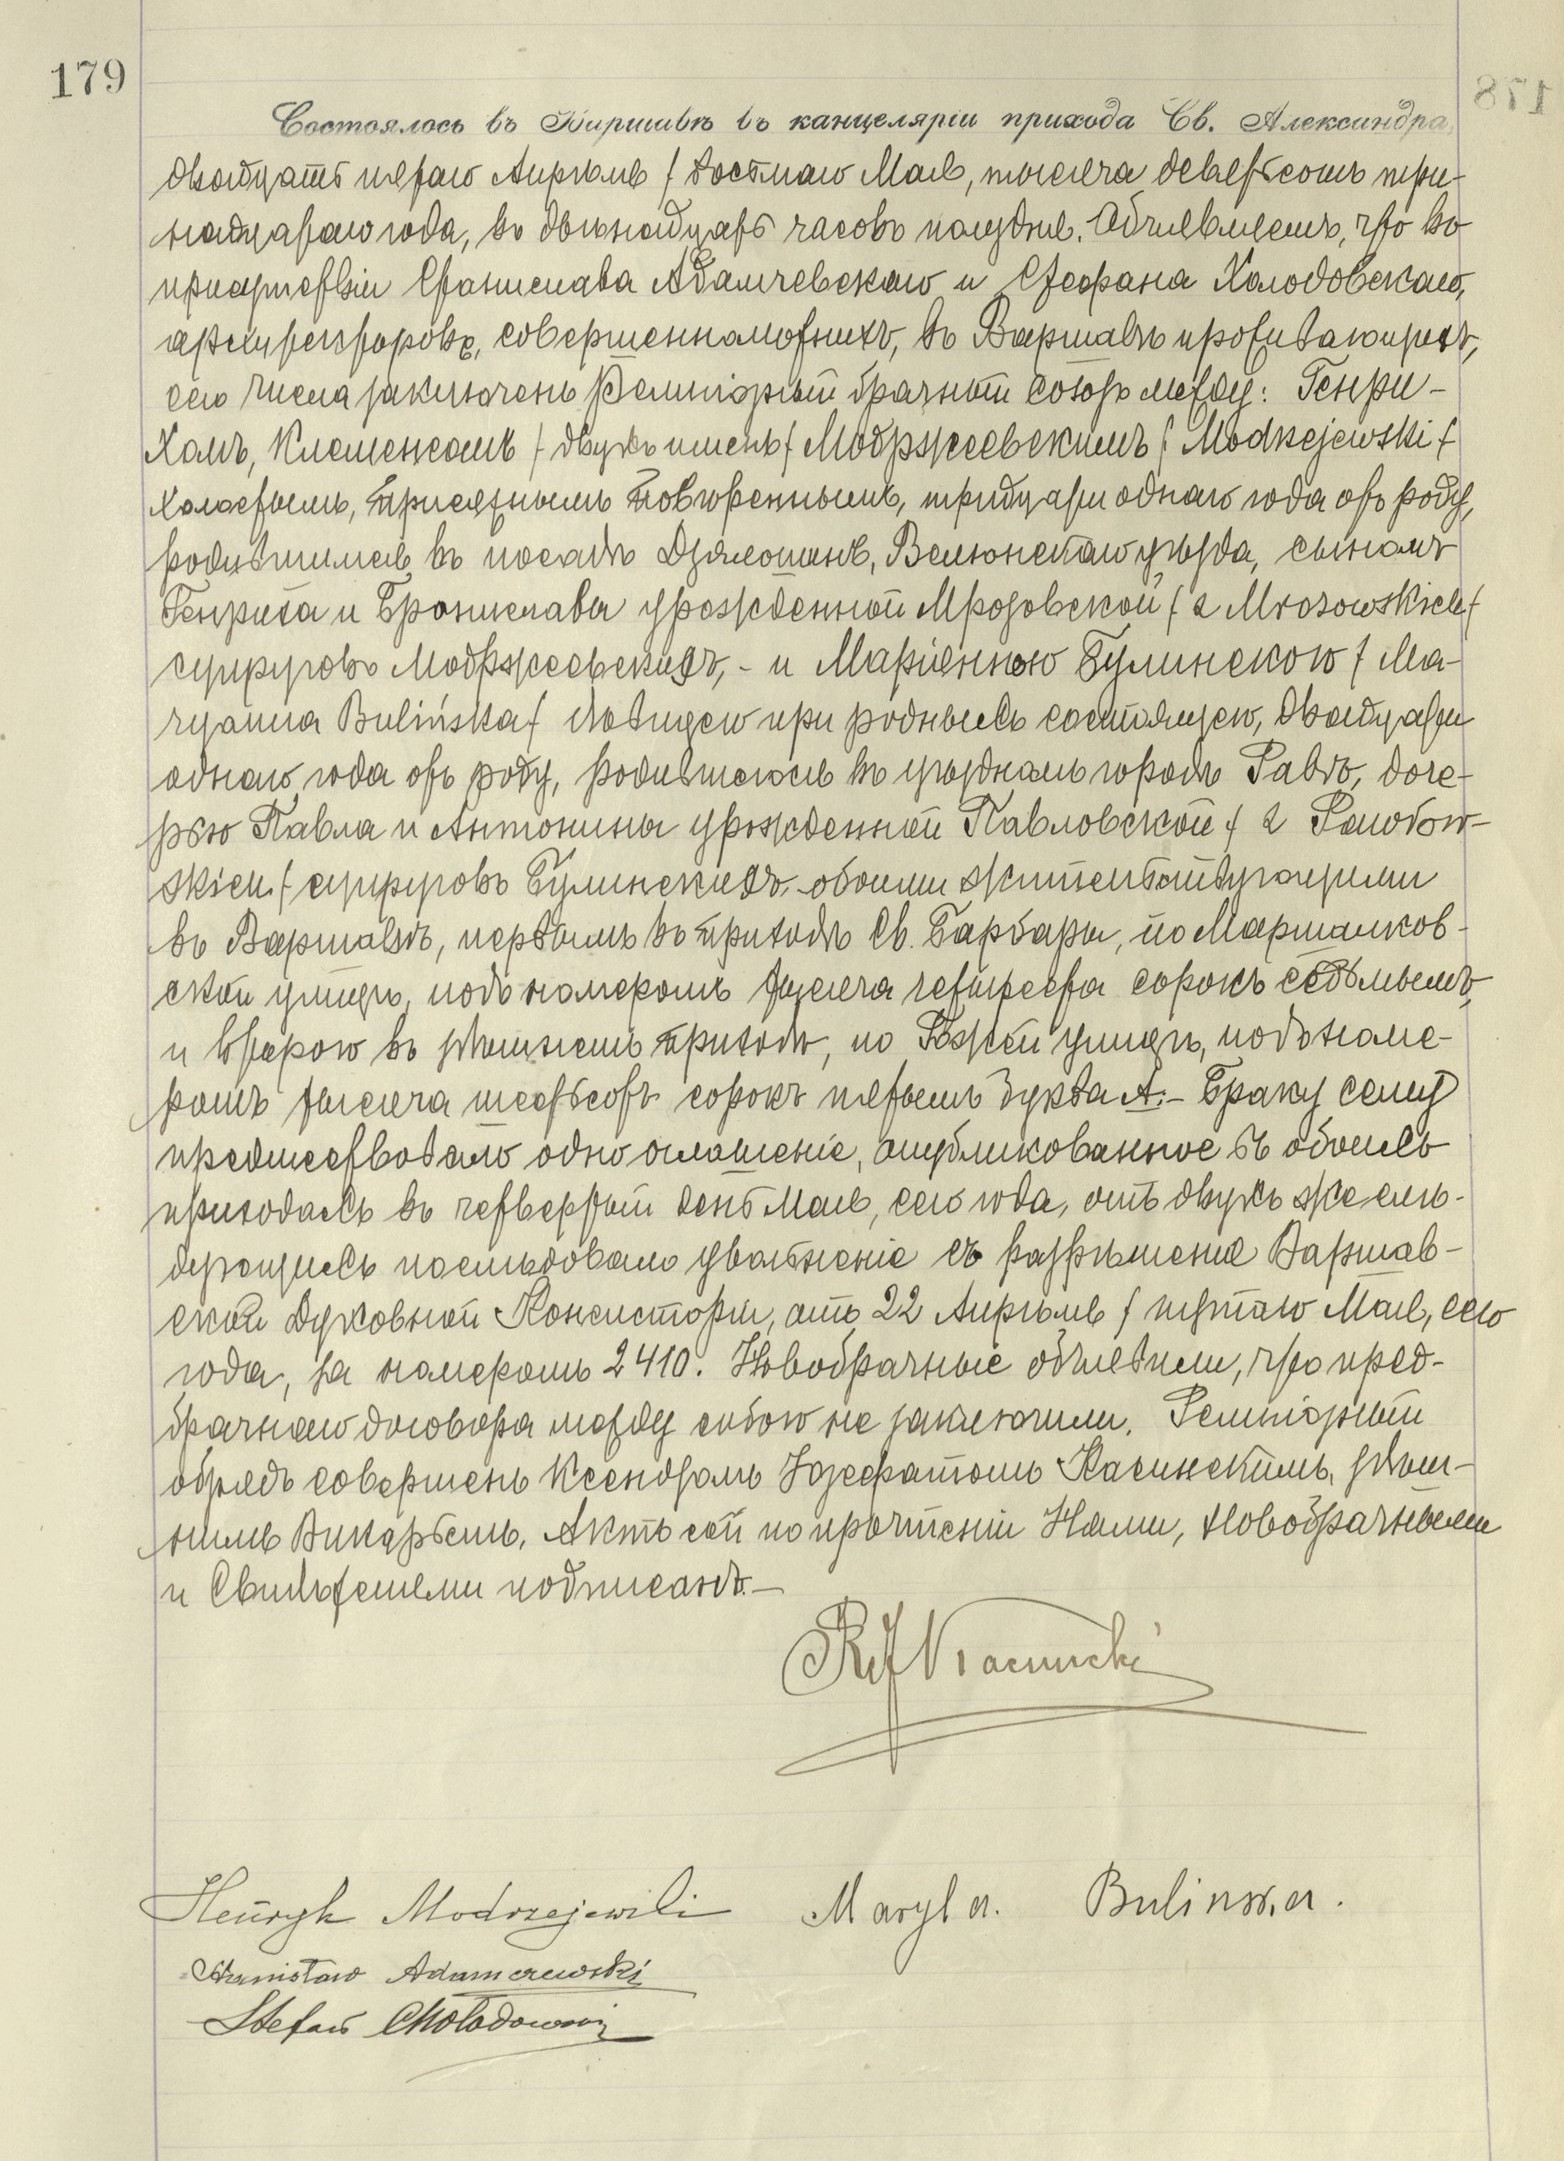 179
178
Состоялось въ Варшавѣ въ канцеляріи прихода Св. Александра,
двадцать пятаго Апрѣля / восьмаго Мая, тысяча девятьсотъ три-
надцатаго года, въ двѣнадцать часовъ полудня. Объявляемъ, что въ
присутствіи Станислава Адамчевскаго и Стефана Холодовскаго,
архитекторовъ, совершеннолѣтнихъ, въ Варшавѣ проживающихъ,
сего числа заключенъ Религіозный брачный союзъ между: Генри-
хомъ, Клеменсомъ / двухъ именъ / Модржеевскимъ / Modrzejewski /
холостымъ, Присяжнымъ Повѣреннымъ, тридцати одного года отъ роду,
родившимся въ посадѣ Дзялошинъ, Велюнскаго уѣзда, сыномъ
Генриха и Брониславы урожденной Мрозовской / z Mrozowskich /
супруговъ Модржеевскихъ, - и Маріанною Булинскою / Ma-
ryanna Bulińska / дѣвицею при родныхъ состоящею, двадцати
одного года отъ роду, родившеюся въ уѣздномъ городѣ Равѣ, доче-
рью Павла и Антонины урожденной Павловской / z
skich / супруговъ Булинскихъ, обоими жительствующими
въ Варшавѣ, первымъ въ приходѣ Св. Барбары, по Маршалков-
ской улицѣ, подъ номеромъ тысяча четыреста сорокъ седьмымъ,
и второю въ здѣшнемъ приходѣ, по улицѣ, подъ номе-
ромъ тысяча шестьсотъ сорокъ пятымъ буква А.- Браку сему
предшествовало одно оглашеніе, опубликованное въ обоихъ
приходахъ въ четвертый день Мая, сего года, отъ двухъ же слѣ-
дующихъ послѣдовало увольненіе съ разрѣшенія Варшав-
ской Духовной Консисторіи, отъ 22 Апрѣля / пятаго Мая, сего
года, за номеромъ 2410. Новобрачные объявили, что пред-
брачнаго договора между собою не заключили. Религіозный
обрядъ совершенъ Ксендзомъ Іозефатомъ Касинскимъ, здѣш-
нимъ Викаріемъ. Актъ сей по прочтеніи Нами, Новобрачными
и Свидѣтелями подписанъ.-
Henryk Modrzejewski Maryla. Bulinska.
Stanisław Adamczewski
Stefan Chołodowski